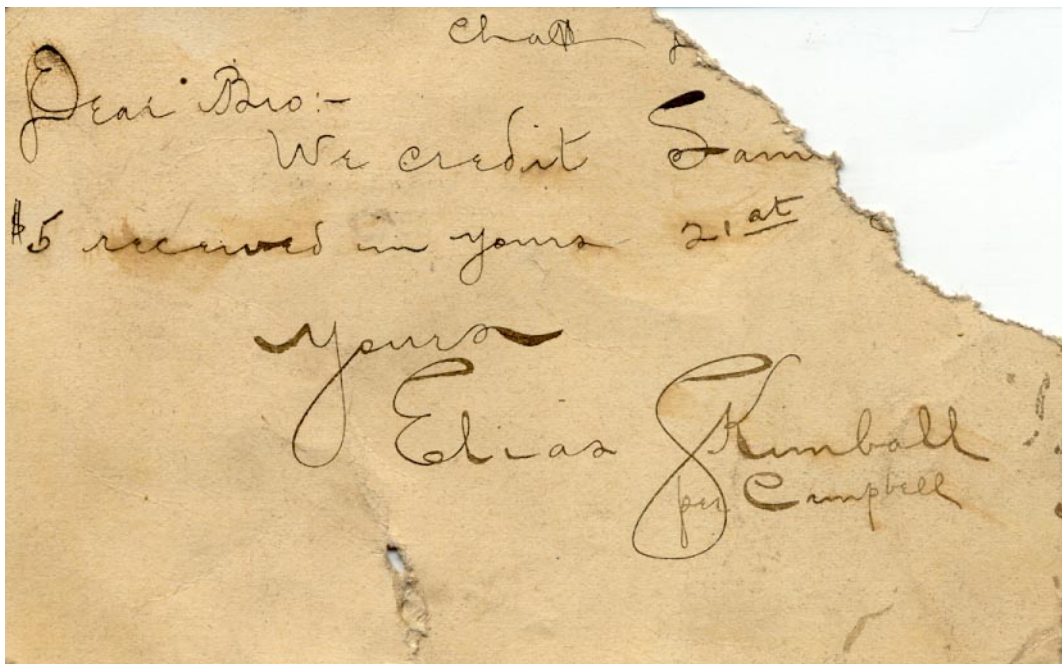 Chatt
Dear Bro:-
We credit Sam
$5 received in yours 21st
Yours
Elias S Kimball
per Campbell